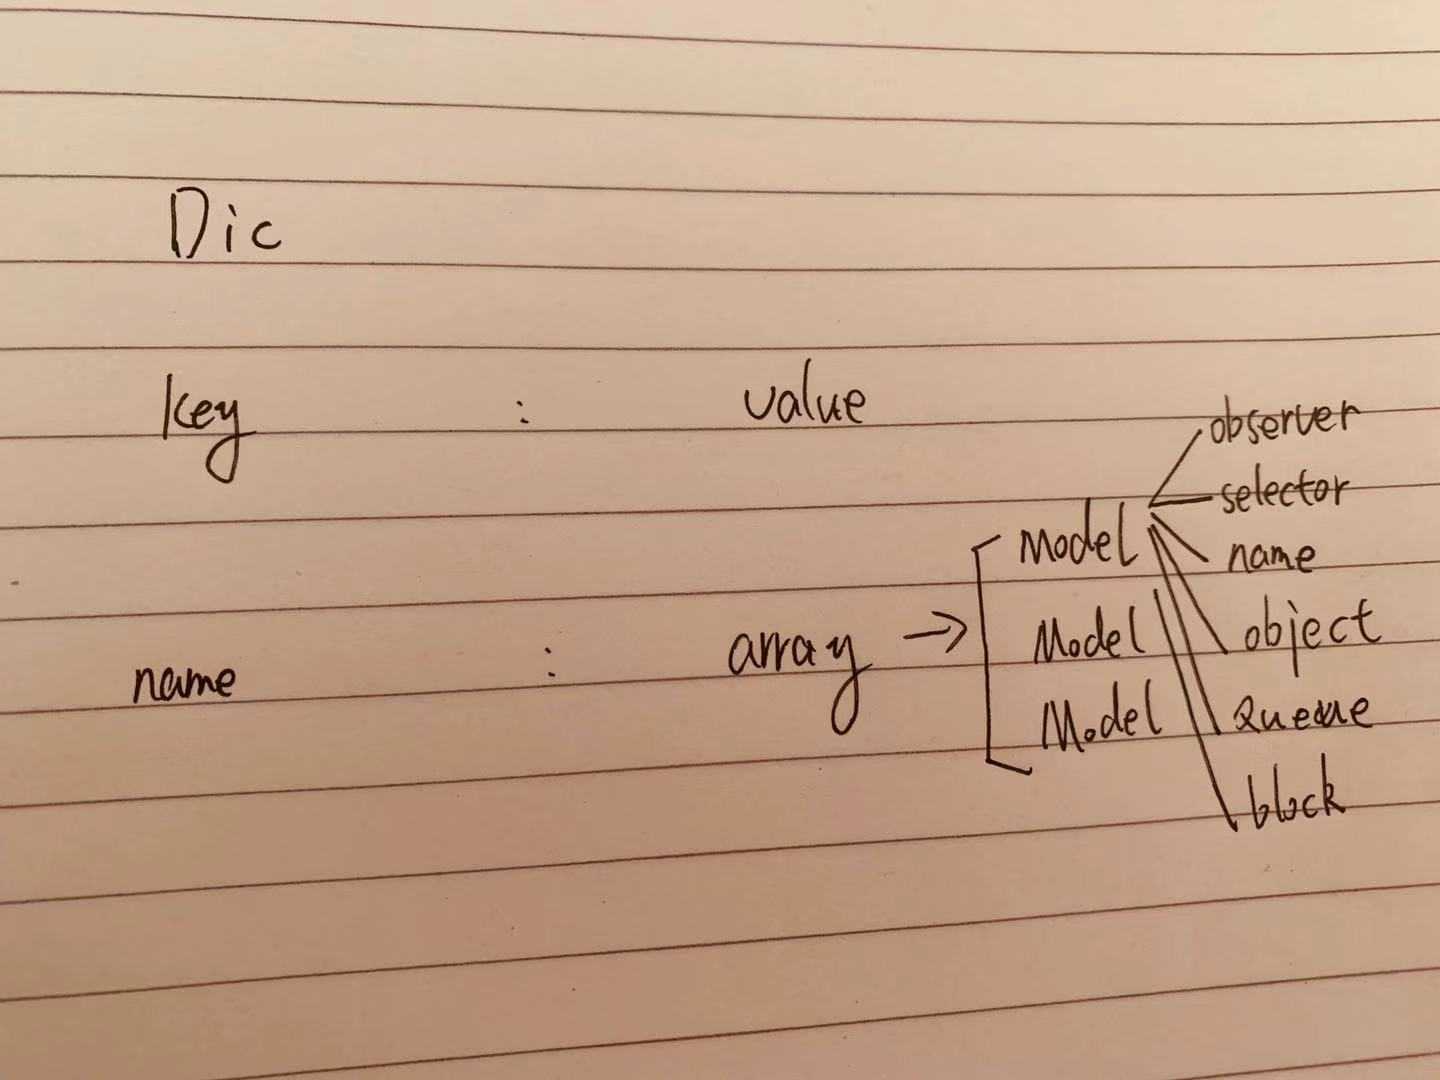 Dic
key : value
observer
selector
Model
name
Model
object
name : array →
Model
Queue
block